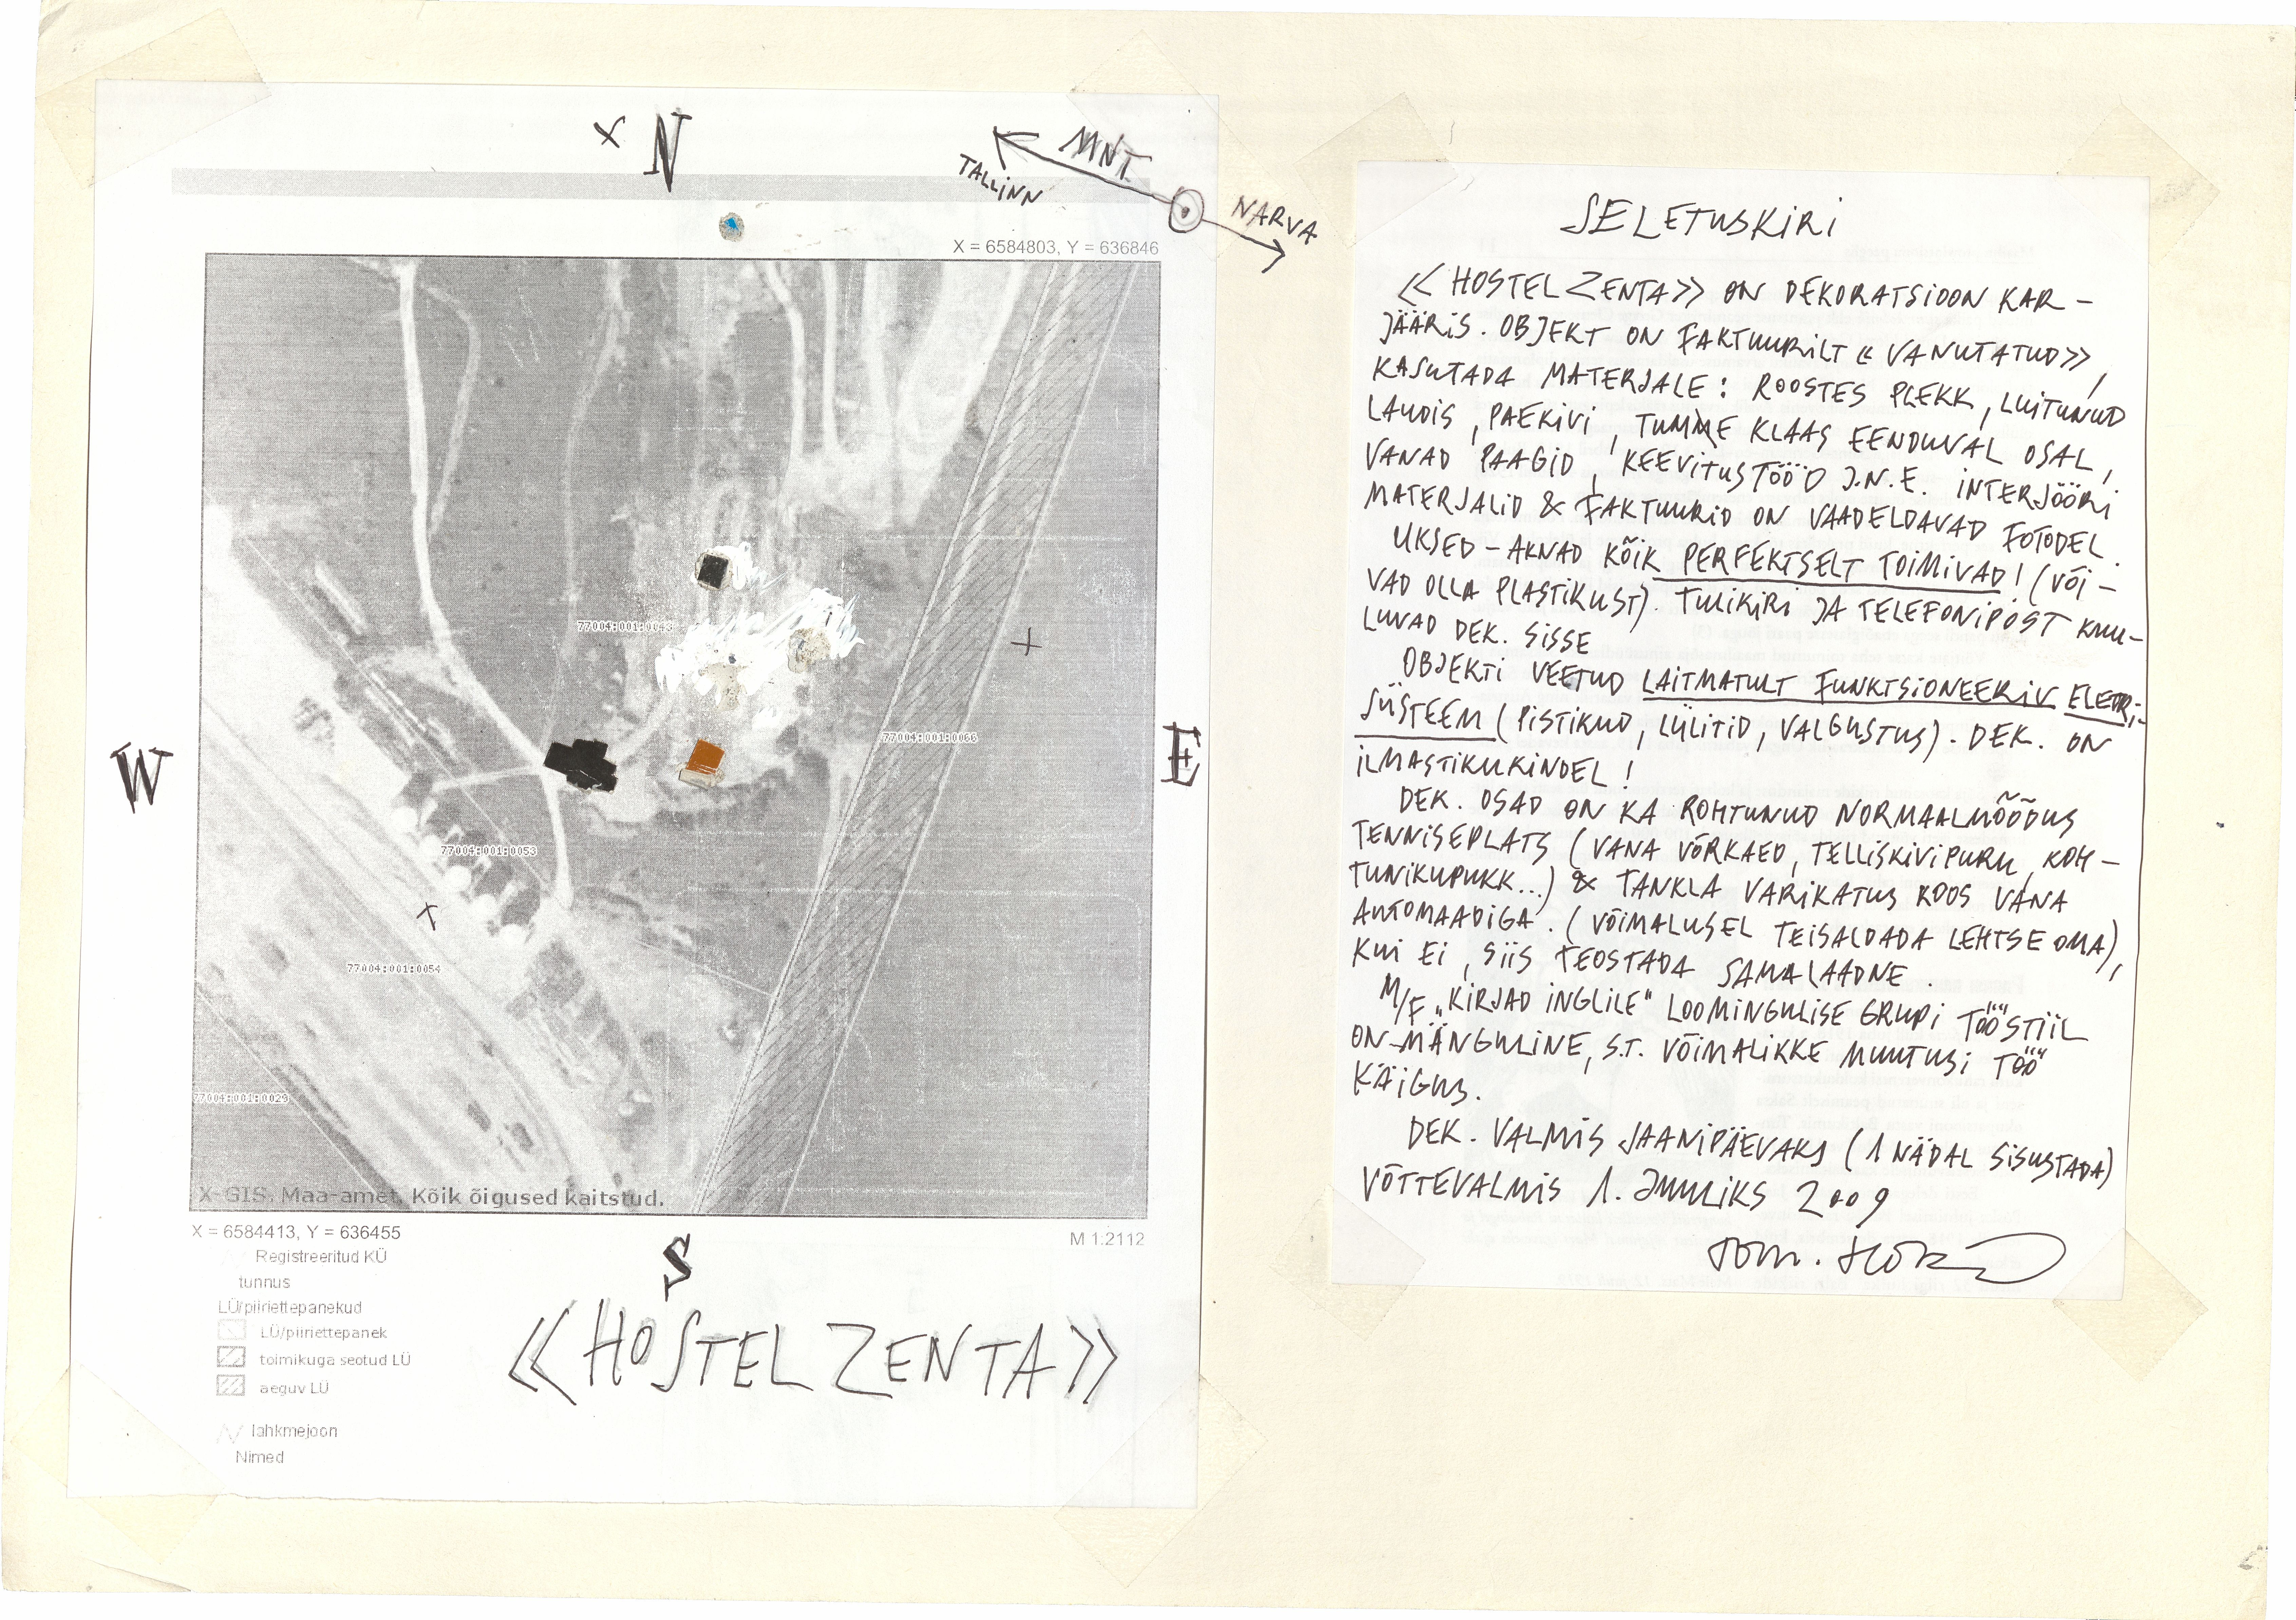 N
MNT.
TALLINN
NARVA
X = 6584803, Y = 636846
77004:001:0043
77004:001:0066
W
E
77004:001:0053
77004:001:0054
77004:001:0029
X-GIS. Maa-amet. Kõik õigused kaitstud.
X = 6584413, Y = 636455
M 1:2112
Registreeritud KÜ
tunnus
LÜ/piiriettepanekud
LÜ/piiriettepanek
toimikuga seotud LÜ
aeguv LÜ
lahkmejoon
Nimed
S
<< HOSTEL ZENTA >>
SELETUSKIRI
<< HOSTEL ZENTA >> ON DEKORATSIOON KAR-
JÄÄRIS. OBJEKT ON FAKTUURILT << VANUTATUD >>,
KASUTADA MATERJALE: ROOSTES PLEKK, LUITUNUD
LAUDIS, PAEKIVI, TUMME KLAAS EENDUVAL OSAL,
VANAD PAAGID, KEEVITUSTÖÖD J.N.E. INTERJÖÖRI
MATERJALID & FAKTUURID ON VAADELDAVAD FOTODEL.
UKSED-AKNAD KÕIK PERFEKTSELT TOIMIVAD! (VÕI-
VAD OLLA PLASTIKUST). TULIKIRI JA TELEFONIPOST KUU-
LUVAD DEK. SISSE
OBJEKTI VEETUD LAITMATULT FUNKTSIONEERIV ELEKTRI-
SÜSTEEM (PISTIKUD, LÜLITID, VALGUSTUS). DEK. ON
ILMASTIKUKINDEL!
DEK. OSAD ON KA ROHTUNUD NORMAALMÕÕDUS
TENNISEPLATS (VANA VÕRKAED, TELLISKIVIPURU, KOH-
TUNIKUPUKK...) & TANKLA VARIKATUS KOOS VANA
AUTOMAADIGA. (VÕIMALUSEL TEISALDADA LEHTSE OMA),
KUI EI, SIIS TEOSTADA SAMALAADNE.
M/F „KIRJAD INGLILE" LOOMINGULISE GRUPI TÖÖSTIIL
ON MÄNGULINE, S.T. VÕIMALIKKE MUUTUSI TÖÖ
KÄIGUS.
DEK. VALMIS JAANIPÄEVAKS (1 NÄDAL SISUSTADA)
VÕTTEVALMIS 1. JUULIKS 2009